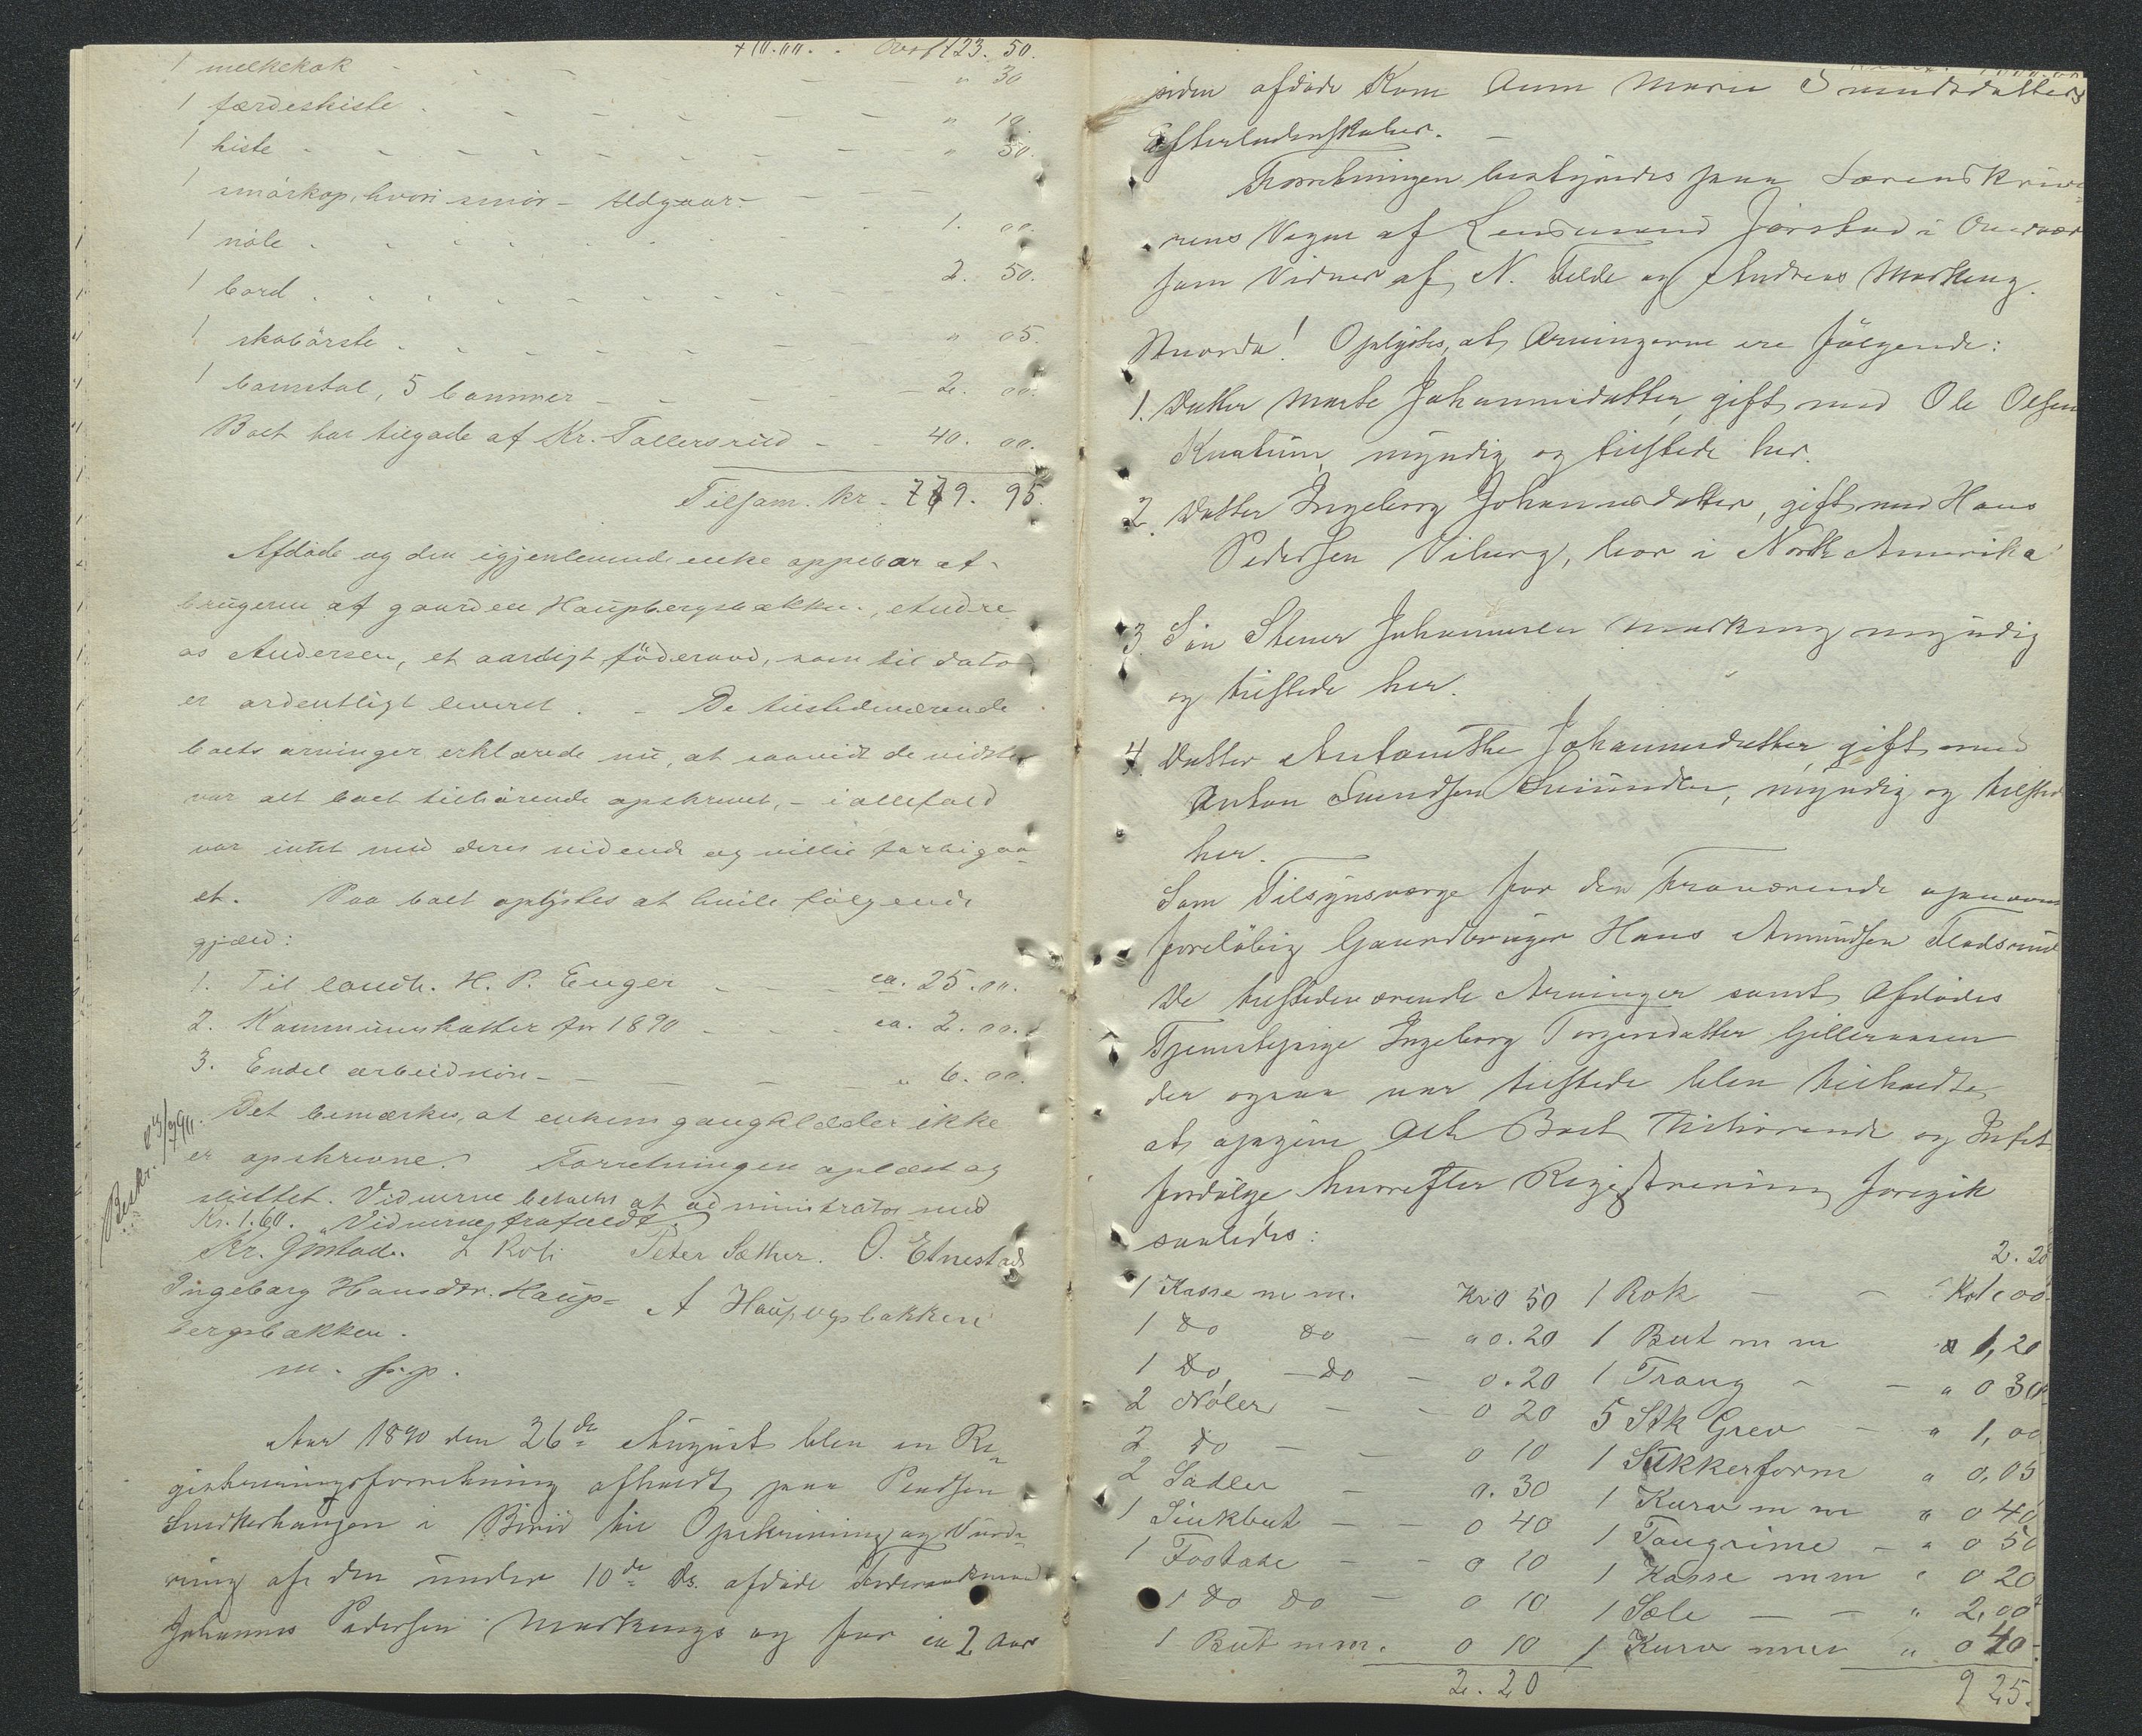 Ovf 723. 50.
1 melkekak - - - " 30
1 færdeskiste - - - " 10.
1 kiste - - - " 50.
1 smörkop, hvori smör - Udgaar -
1 nöle - - - 1. 00.
1 bord - - - 2. 50.
1 skobörste - - - " 05.
1 bommer - - 2. 00.
Boet har tilgode af Kr. Tallersrud - - 40. 00.
Tilsam. kr. 769. 95.
Afdöde og den igjenlevende enke oppebar af
brugeren af gaarden Haupbergsbakken, Andre
as Andersen, et aarligt föderaad, som til dato
er ordentligt leveret. - De tilstedeværende
boets arvinger erklærede nu, at saavidt de vidste
var alt boet tilhörende opskrevet, - i allefald
var intet med deres vidende og villie forbigaa-
et. Paa boet oplystes at hvile fölgende
gjæld:
1. Til landh. H. P. Enger - - - ca. 25.00.
2. Kommuneskatter for 1890 - - - ca. 2.00.
3. Endel arbeidslön - - - " 6.00.
Det bemærkes, at enkens gangklæder ikke
er opskrevne. Forretningen oplæst og
sluttet. Vidnerne betaltes af administrator med
Kr. 1.60. Vidnerne frafaldt.
Kr. Jörstad. L Roli Peter Sæther. O. Etnestad
Ingeborg Hansdtr. Haup- A Haupbergsbakken
bergsbakken.
m. f. p.
Aar 1890 den 26de August blev en Re-
gistreringsforretning afholdt paa Pladsen
i Birid til Opskrivning og Vurde-
ring af den under 10de ds. afdöde Föderaadsmand
Johannes Pedersen Markeng og for ca 2 Aar
siden afdöde Kone Anne Marie
Efterladenskaber. -
Forretningen bestyredes paa Sorenskrive-
rens Vegne af Lensmand Jörstad i Overvær
som Vidner af N. Telde og Andreas Markeng.
Hvorda! Oplystes, at Arvingerne ere fölgende:
1. Datter Marte Johannesdatter, gift med Ole Olsen
myndig og tilstede her.
2. Datter Ingeborg Johannesdatter, gift med Hans
Pedersen Viberg, bor i Nord Amerika
3 Sön Stener Johannesen Markeng myndig
og tilstede her.
4. Datter Antonethe Johannesdatter gift med
Anton Svendsen myndig og tilstede
her.
Som Tilsynsværge for den Fraværende opnævntes
foreløbig Gaardbruger Hans Amundsen
De tilstedeværende Arvinger samt Afdödes
Tjenestepige Ingeborg Torgersdatter
der ogsaa var tilstede blev tilholdte
at opgive alt Boet Tilhörende og Intet
fordölge hvorefter Registrering foregik
saaledes:
2. 20
1 Kasse m m. Kr 0 50 1 Rok - - Kr 1 00
1 Do Do - " 0.20 1 But m m " 1,20
1 Do - Do - 0.20 1 Traug - - " 0 30
2 Nöler - - 0 20 5 Stk Grev - " 1,00
2 Do - - 0 10 1 Sukkerform " 0,05
2 Sadler - 0.30 1 Kurv m m " 0 40
1 Sinkbut - - 0 40 1 Taugrime - " 0 50
1 - - 0 10 1 Kasse m m " 0 20
1 Do Do - 0 10 1 Sæle - - " 2,00
1 But m m. 0 10 1 Kurv m m " 0 40.
2.20 9 25.